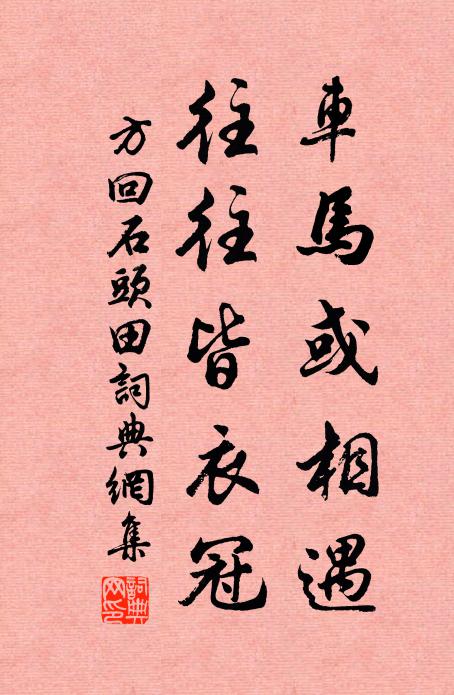 車馬或相遇
往往皆衣冠
方回石頭田詞典網集
詞典
网印